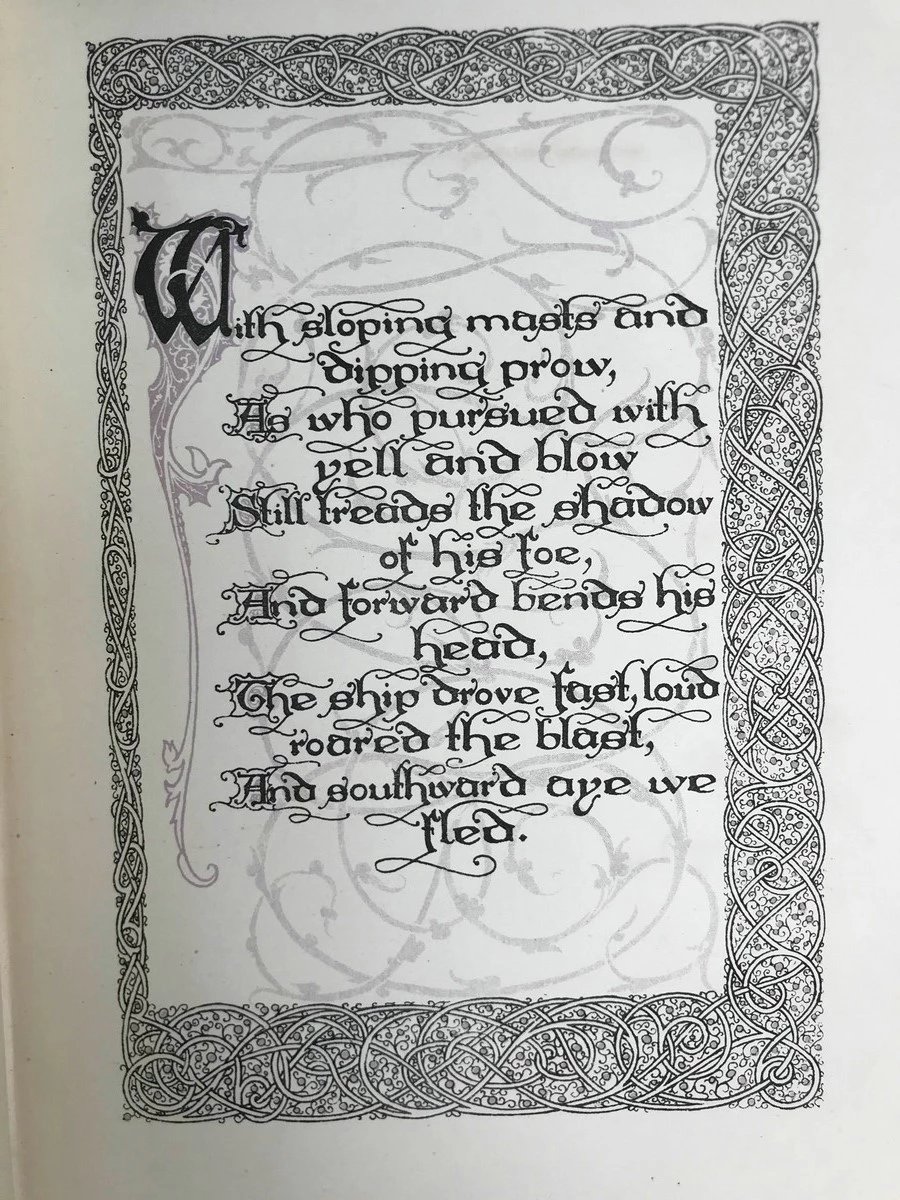 With sloping masts and
dipping prow,
As who pursued with
yell and blow
Still treads the shadow
of his foe,
And forward bends his
head,
The ship drove fast, loud
roared the blast,
And southward aye we
fled.